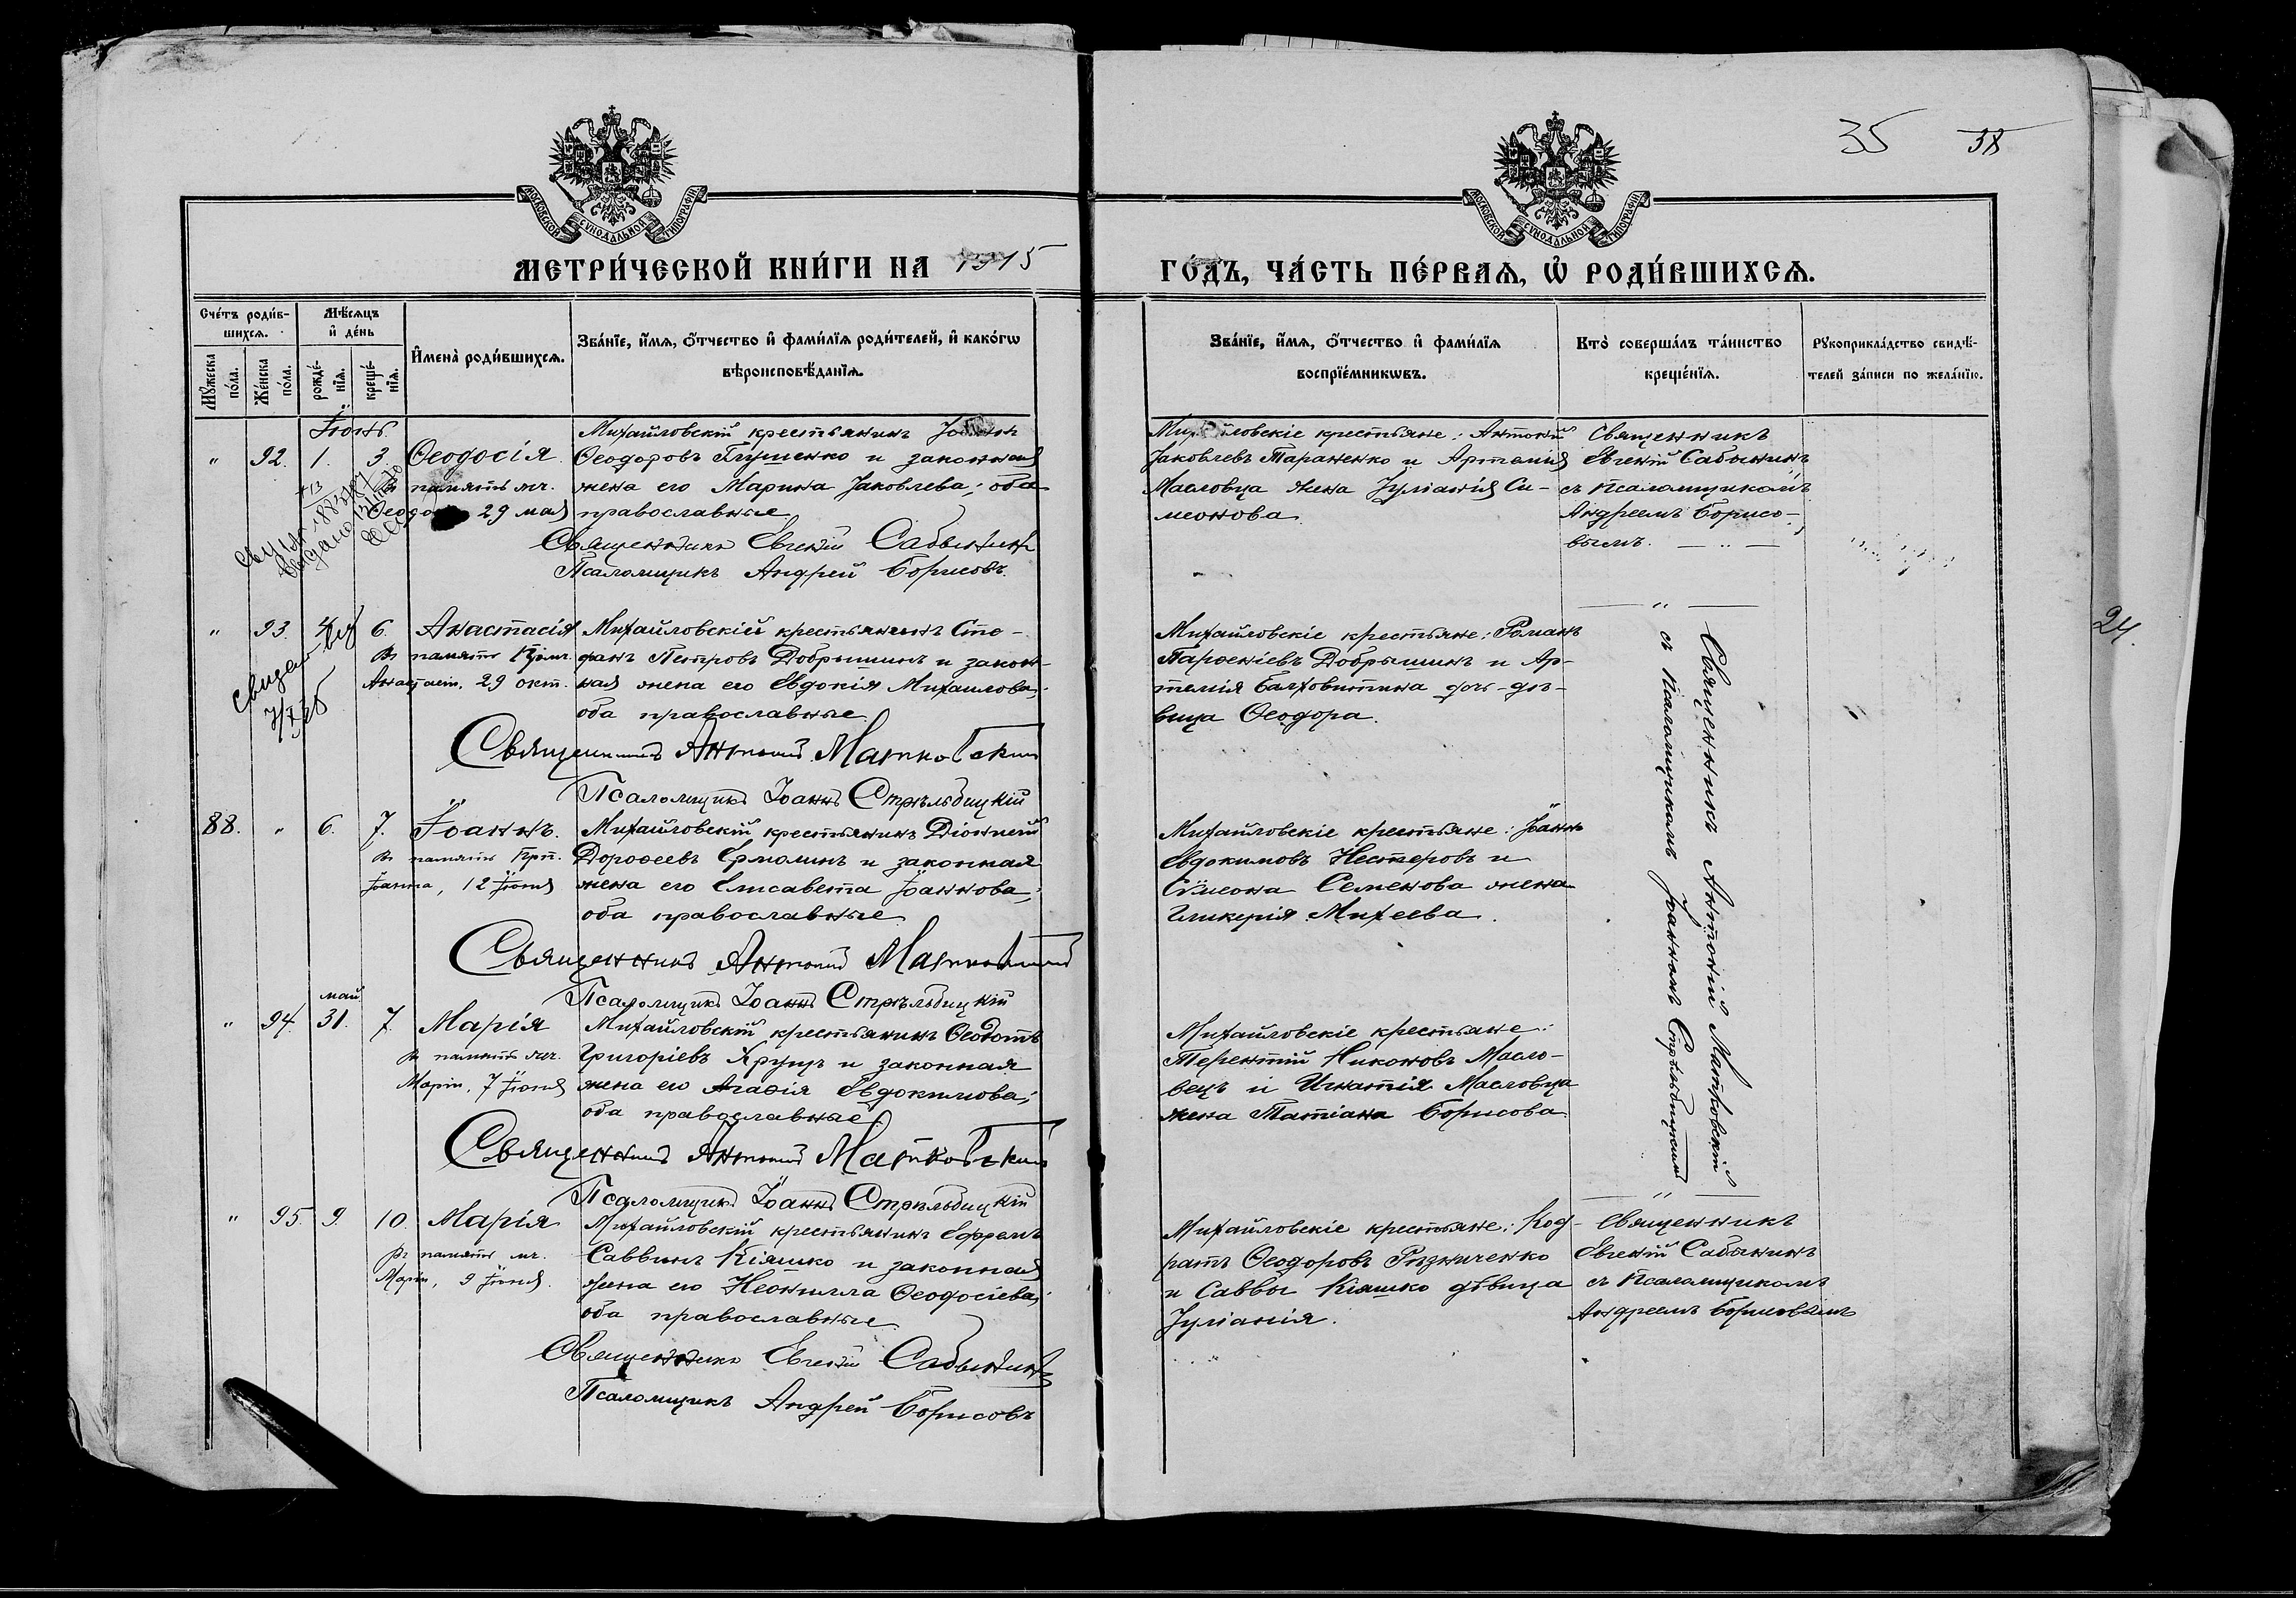 35 38
МОСКОВСКОЙ СѴНОДАЛЬНОЙ ТИПОГРАФІИ
МОСКОВСКОЙ СѴНОДАЛЬНОЙ ТИПОГРАФІИ
МЕТРИ́ЧЕСКОЙ КНИ́ГИ НА 1915
ГО́ДЪ, ЧА́СТЬ ПЕ́РВАѦ, Ѡ҆ РОДИ́ВШИХСѦ.
Сче́тъ роди́в-
шихсѧ.
Мꙋ́жеска по́ла.
Же́нска по́ла.
Мѣ́сѧцъ
и҆ де́нь
рожде́-нїѧ.
креще́-нїѧ.
И҆мена̀ роди́вшихсѧ.
Зва́нїе, и҆́мѧ, ѻ҆́тчество и҆ фами́лїѧ роди́телей, и҆ како́гѡ
вѣроисповѣ́данїѧ.
Зва́нїе, и҆́мѧ, ѻ҆́тчество и҆ фами́лїѧ
воспрїе́мникѡвъ.
Кто̀ соверша́лъ та́инство
креще́нїѧ.
Рꙋкоприкла́дство свидѣ́-
телей за́писи по жела́нїю.
Іюнь.
" 92. 1. 3. Ѳеодосія
въ память мч.
29 мая
Михайловскій крестьянинъ
Ѳеодоровъ Глушенко и законная
жена его Марина Яковлева; оба
православные
Священникъ Евгеній Сабынинъ
Псаломщикъ Андрей Борисовъ.
Михайловскіе крестьяне: Антоній
Яковлевъ Тараненко и Артемія
Масловца жена Іуліанія Си-
меонова
Священникъ
Евгеній Сабынинъ
съ псаломщикомъ
Андреемъ Борисо-
вымъ.
" 93. 6. Анастасія
Въ память
29 окт.
Михайловскій крестьянинъ Сте-
фанъ Петровъ Добрышинъ и закон-
ная жена его Евдокія Михаилова;
оба православные
Священникъ Антоній Матковскій
Псаломщикъ Іоаннъ Стрѣльбицкій
Михайловскіе крестьяне: Романъ
Парѳеніевъ Добрышинъ и Ар-
темія дочь-дѣ-
вица Ѳеодора.
Священникъ Антоній Матковскій
съ псаломщикомъ Іоанномъ Стрѣльбицкимъ
24.
88. " 6. 7. Іоаннъ.
Въ память Прп.
Іоанна, 12 Іюня
Михайловскій крестьянинъ Діонисій
Дороѳеевъ Ермолинъ и законная
жена его Елисавета Іоаннова;
оба православные
Священникъ Антоній Матковскій
Псаломщикъ Іоаннъ Стрѣльбицкій
Михайловскіе крестьяне: Іоаннъ
Евдокимовъ Нестеровъ и
Сѵмеона Семенова жена
Гликерія Михеева.
май
" 94. 31. 7. Марія
Въ память мч.
Маріи, 7 Іюня
Михайловскій крестьянинъ Ѳеодотъ
Григоріевъ Хрущъ и законная
жена его Агаѳія Евдокимова;
оба православные
Священникъ Антоній Матковскій
Псаломщикъ Іоаннъ Стрѣльбицкій
Михайловскіе крестьяне:
Терентій Никоновъ Масло-
вецъ и Игнатія Масловца
жена Татіана Борисова.
" 95. 9. 10. Марія
Въ память мч.
Маріи, 9 Іюня.
Михайловскій крестьянинъ Ефремъ
Саввинъ Кіяшко и законная
жена его Неонилла Ѳеодосіева;
оба православные
Священникъ Евгеній Сабынинъ
Псаломщикъ Андрей Борисовъ
Михайловскіе крестьяне: Код-
ратъ Ѳеодоровъ Рѣзниченко
и Саввы Кіяшко дѣвица
Іуліанія.
Священникъ
Евгеній Сабынинъ
съ псаломщикомъ
Андреемъ Борисовымъ